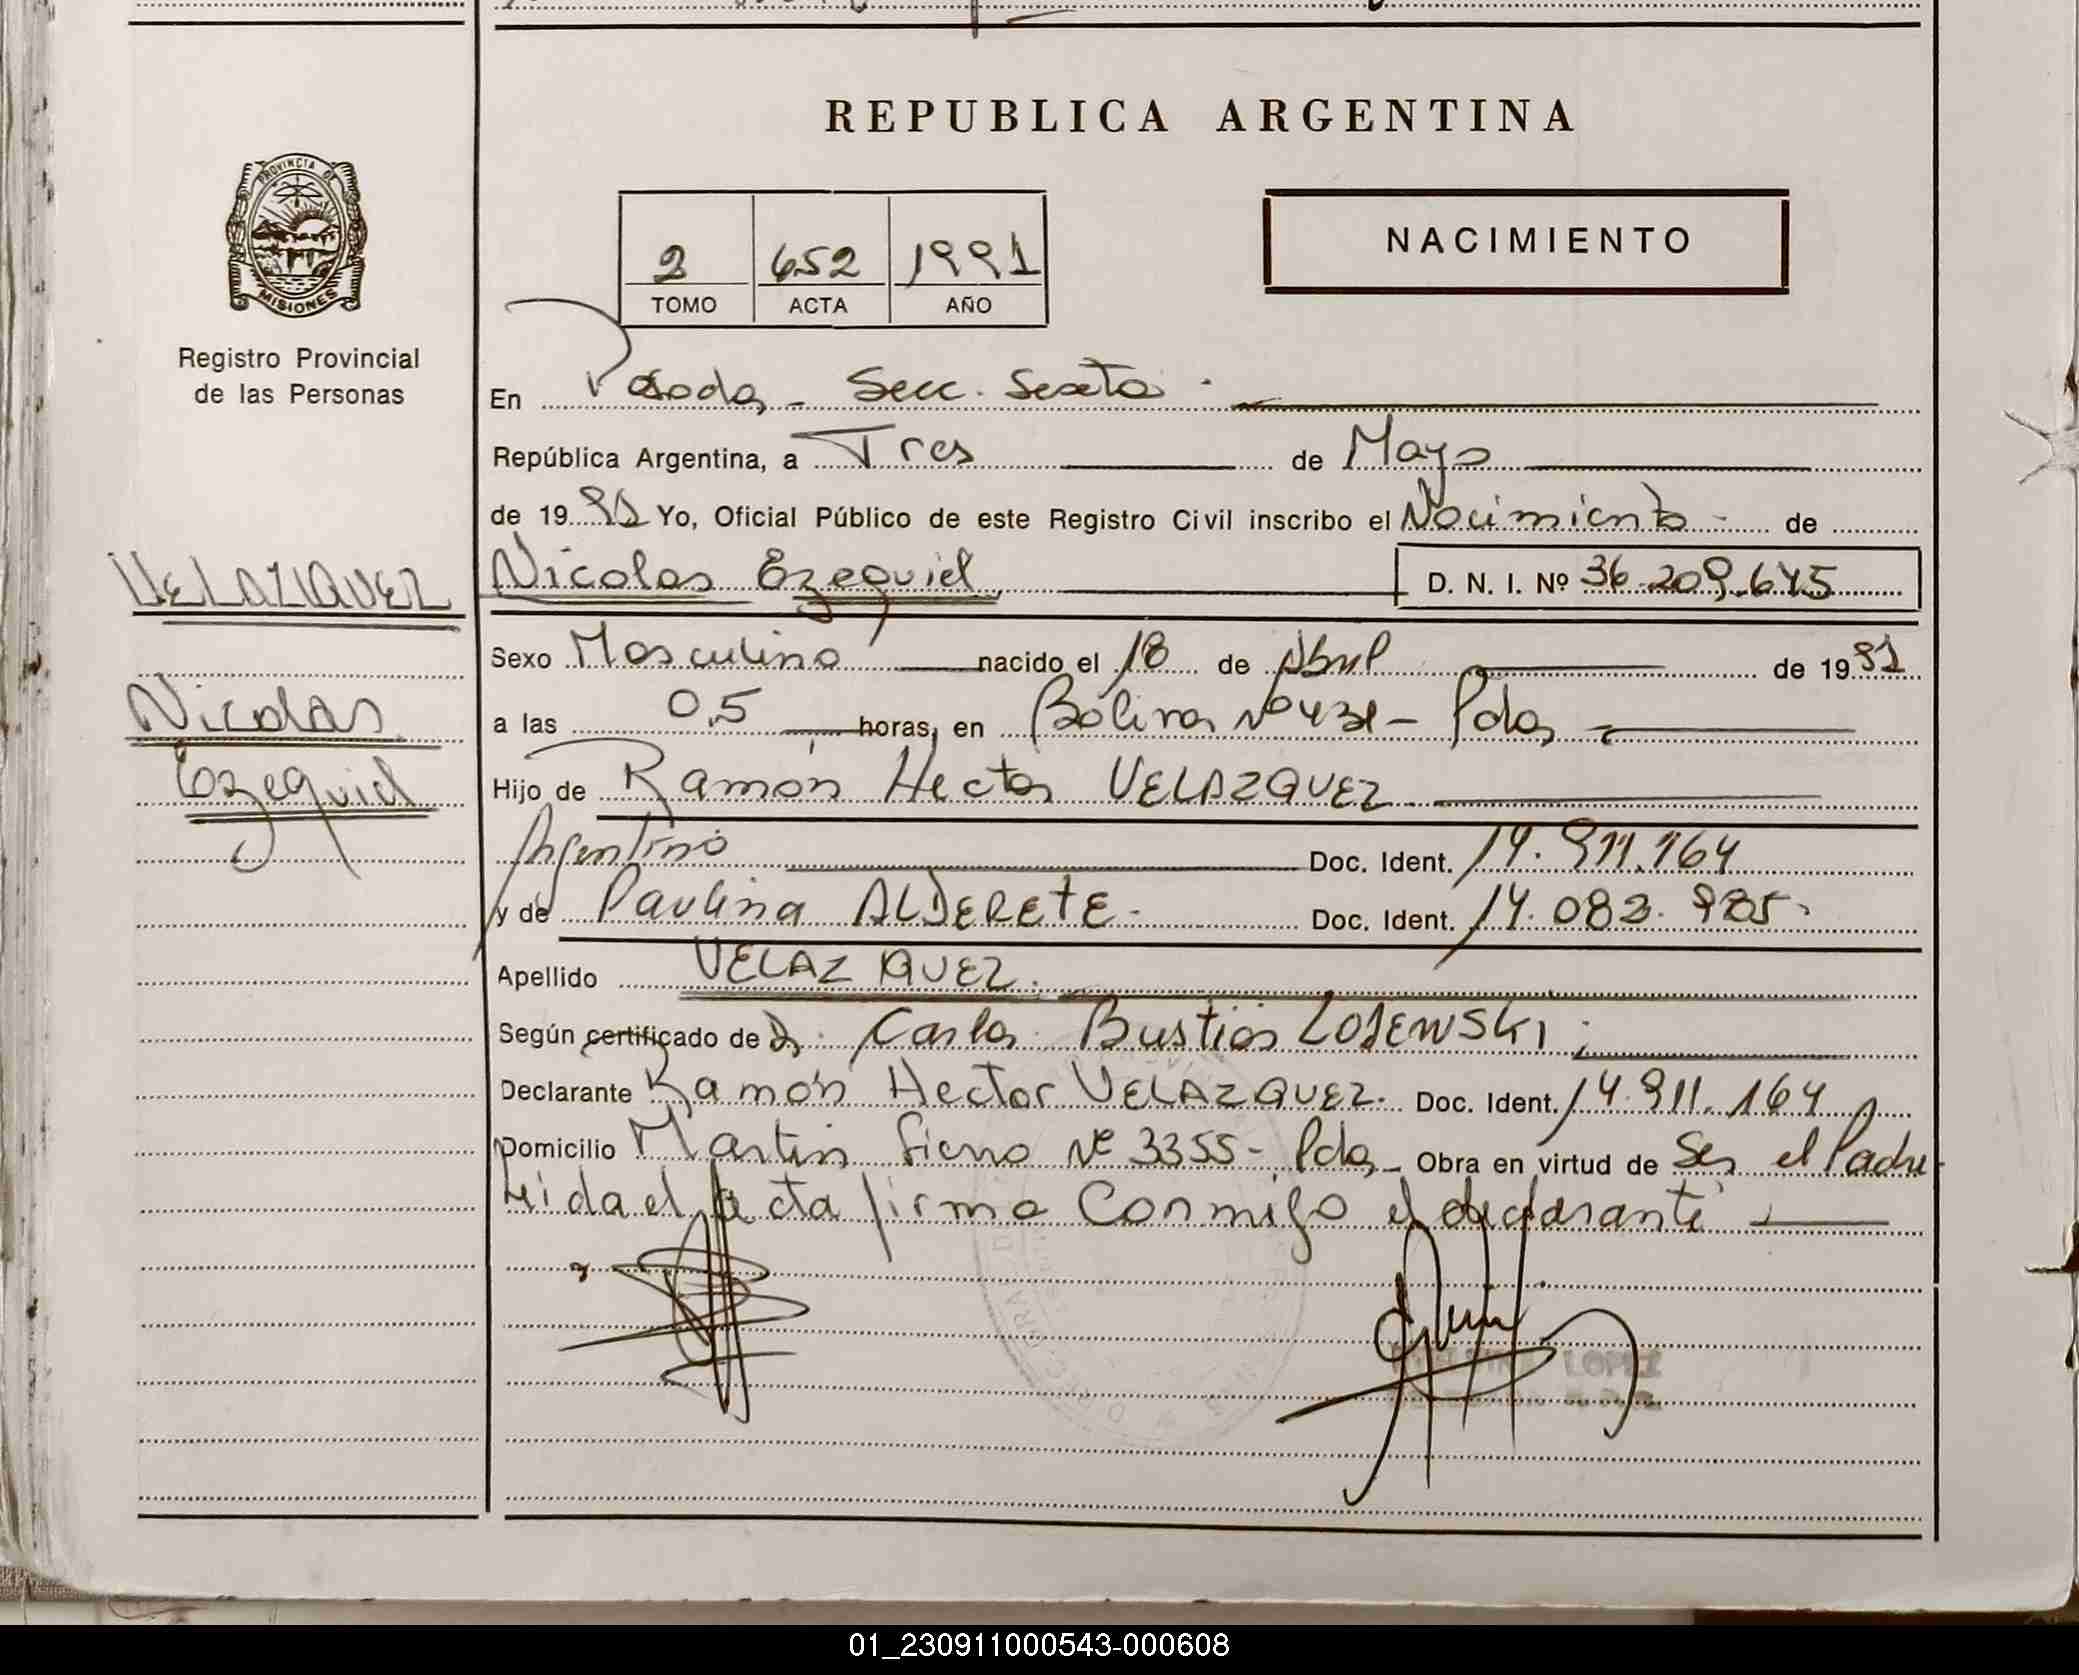 REPUBLICA ARGENTINA
PROVINCIA DE MISIONES
Registro Provincial
de las Personas
2 652 1991
TOMO ACTA AÑO
NACIMIENTO
En Posadas - Secc. Sexta.
República Argentina, a Tres de Mayo
de 1991 Yo, Oficial Público de este Registro Civil inscribo el Nacimiento - de
VELAZQUEZ
Nicolas
Ezequiel
Nicolas Ezequiel D. N. I. Nº 36.209.645
Sexo Masculino nacido el 18 de Abril de 1991
a las 0,5 horas, en Bolivar Nº 431 - Pdas
Hijo de Ramón Hector VELAZQUEZ
Argentino Doc. Ident. 14.911.164
y de Paulina ALDERETE. Doc. Ident. 14.083.985
Apellido VELAZQUEZ.
Según certificado de Dr. Carlos Bustios LOSEWSKI
Declarante Ramón Hector VELAZQUEZ. Doc. Ident. 14.911.164
Domicilio Martin Fierro Nº 3355 - Pdas - Obra en virtud de Ser el Padre
Leida el Acta firma Conmigo el declarante
LOPEZ
01_230911000543-000608